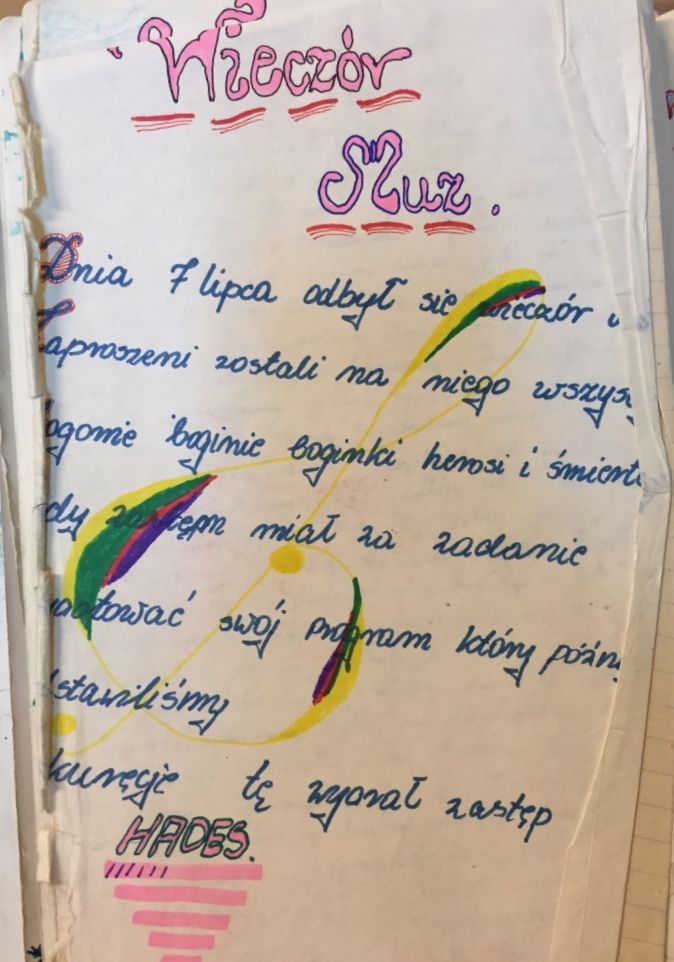 Wieczór
Muz.
Dnia 7 lipca odbył się wieczór
Zaproszeni zostali na niego wszys
ogowie boginie boginki herosi i śmiert
dy zastęp miał za zadanie
swój program który późn
stawiliśmy
kuręcję tę wygrał zastęp
HADES.